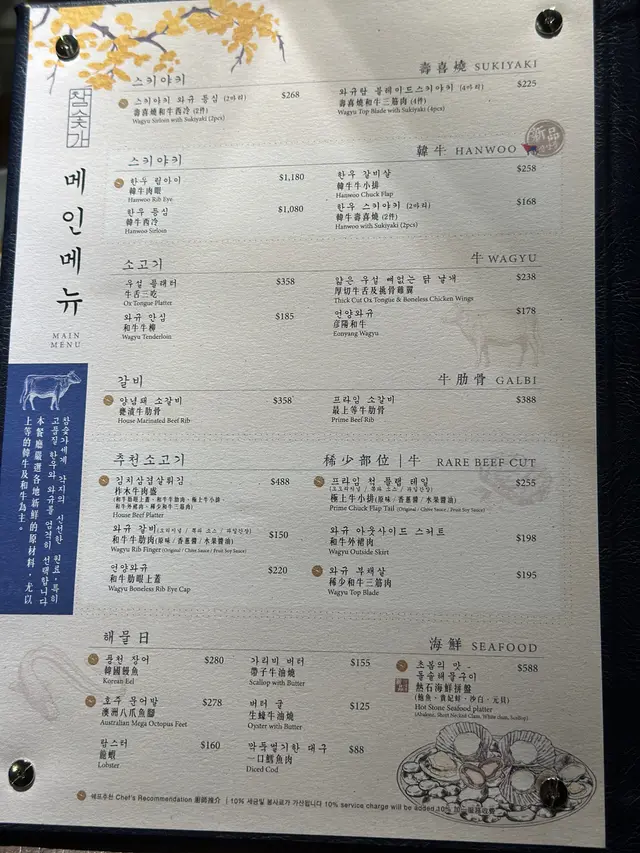 참숯가
메인메뉴
MAIN
MENU
참숯가에게 각지의 신선한 원료, 특히
고품질 한우와 와규를 엄격히 선택합니다
本餐廳嚴選各地新鮮的原材料，尤以
上等的韓牛及和牛為主。
스키야키
壽喜燒 SUKIYAKI
스키야키 와규 등심 (2마리)
$268
壽喜燒和牛西冷 (2件)
Wagyu Sirloin with Sukiyaki (2pcs)
와규탑 블레이드스키야키 (4마리)
$225
壽喜燒和牛三筋肉 (4件)
Wagyu Top Blade with Sukiyaki (4pcs)
新品
스키야키
韓牛 HANWOO
한우 립아이
$1,180
韓牛肉眼
Hanwoo Rib Eye
한우 갈비살
$258
韓牛牛小排
Hanwoo Chuck Flap
한우 등심
$1,080
韓牛西冷
Hanwoo Sirloin
한우 스키야키 (2마리)
$168
韓牛壽喜燒 (2件)
Hanwoo with Sukiyaki (2pcs)
소고기
牛 WAGYU
우설 플래터
$358
牛舌三吃
Ox Tongue Platter
얇은 우설 뼈없는 닭 날개
$238
厚切牛舌及挑骨雞翼
Thick Cut Ox Tongue & Boneless Chicken Wings
와규 안심
$185
和牛牛柳
Wagyu Tenderloin
언양와규
$178
彦陽和牛
Eonyang Wagyu
갈비
牛肋骨 GALBI
양념돼 소갈비
$358
醬漬牛肋骨
House Marinated Beef Rib
프라임 소갈비
$388
最上等牛肋骨
Prime Beef Rib
추천소고기
稀少部位 | 牛 RARE BEEF CUT
김치삼겹살튀김
$488
柞木牛肉盛
(和牛肋眼上蓋、和牛牛肋肉、極上牛小排、
和牛外裙肉、稀少和牛三筋肉)
House Beef Platter
프라임 척 플랩 테일
$255
極上牛小排 (原味 / 香蔥醬 / 水果醬油)
Prime Chuck Flap Tail (Original / Chive Sauce / Fruit Soy Sauce)
와규 갈비 (오리지널 / 쪽파 소스 / 과일간장)
$150
和牛牛肋肉 (原味 / 香蔥醬 / 水果醬油)
Wagyu Rib Finger (Original / Chive Sauce / Fruit Soy Sauce)
와규 아웃사이드 스커트
$198
和牛外裙肉
Wagyu Outside Skirt
언양와규
$220
和牛肋眼上蓋
Wagyu Boneless Rib Eye Cap
와규 부채살
$195
稀少和牛三筋肉
Wagyu Top Blade
해물日
海鮮 SEAFOOD
풍천 장어
$280
韓國鰻魚
Korean Eel
가리비 버터
$155
帶子牛油燒
Scallop with Butter
초봄의 맛 -
돌솥해물구이
$588
熱石海鮮拼盤
(鮑魚、貴妃蚌、沙白、元貝)
Hot Stone Seafood platter
(Abalone, Short Necked Clam, White clam, Scallop)
호주 문어발
$278
澳洲八爪魚腳
Australian Mega Octopus Feet
버터 굴
$125
生蠔牛油燒
Oyster with Butter
랍스터
$160
龍蝦
Lobster
먹둑썰기한 대구
$88
一口鱈魚肉
Diced Cod
쉐프추천 Chef's Recommendation 廚師推介 | 10% 세금및 봉사료가 가산됩니다 10% service charge will be added 10%